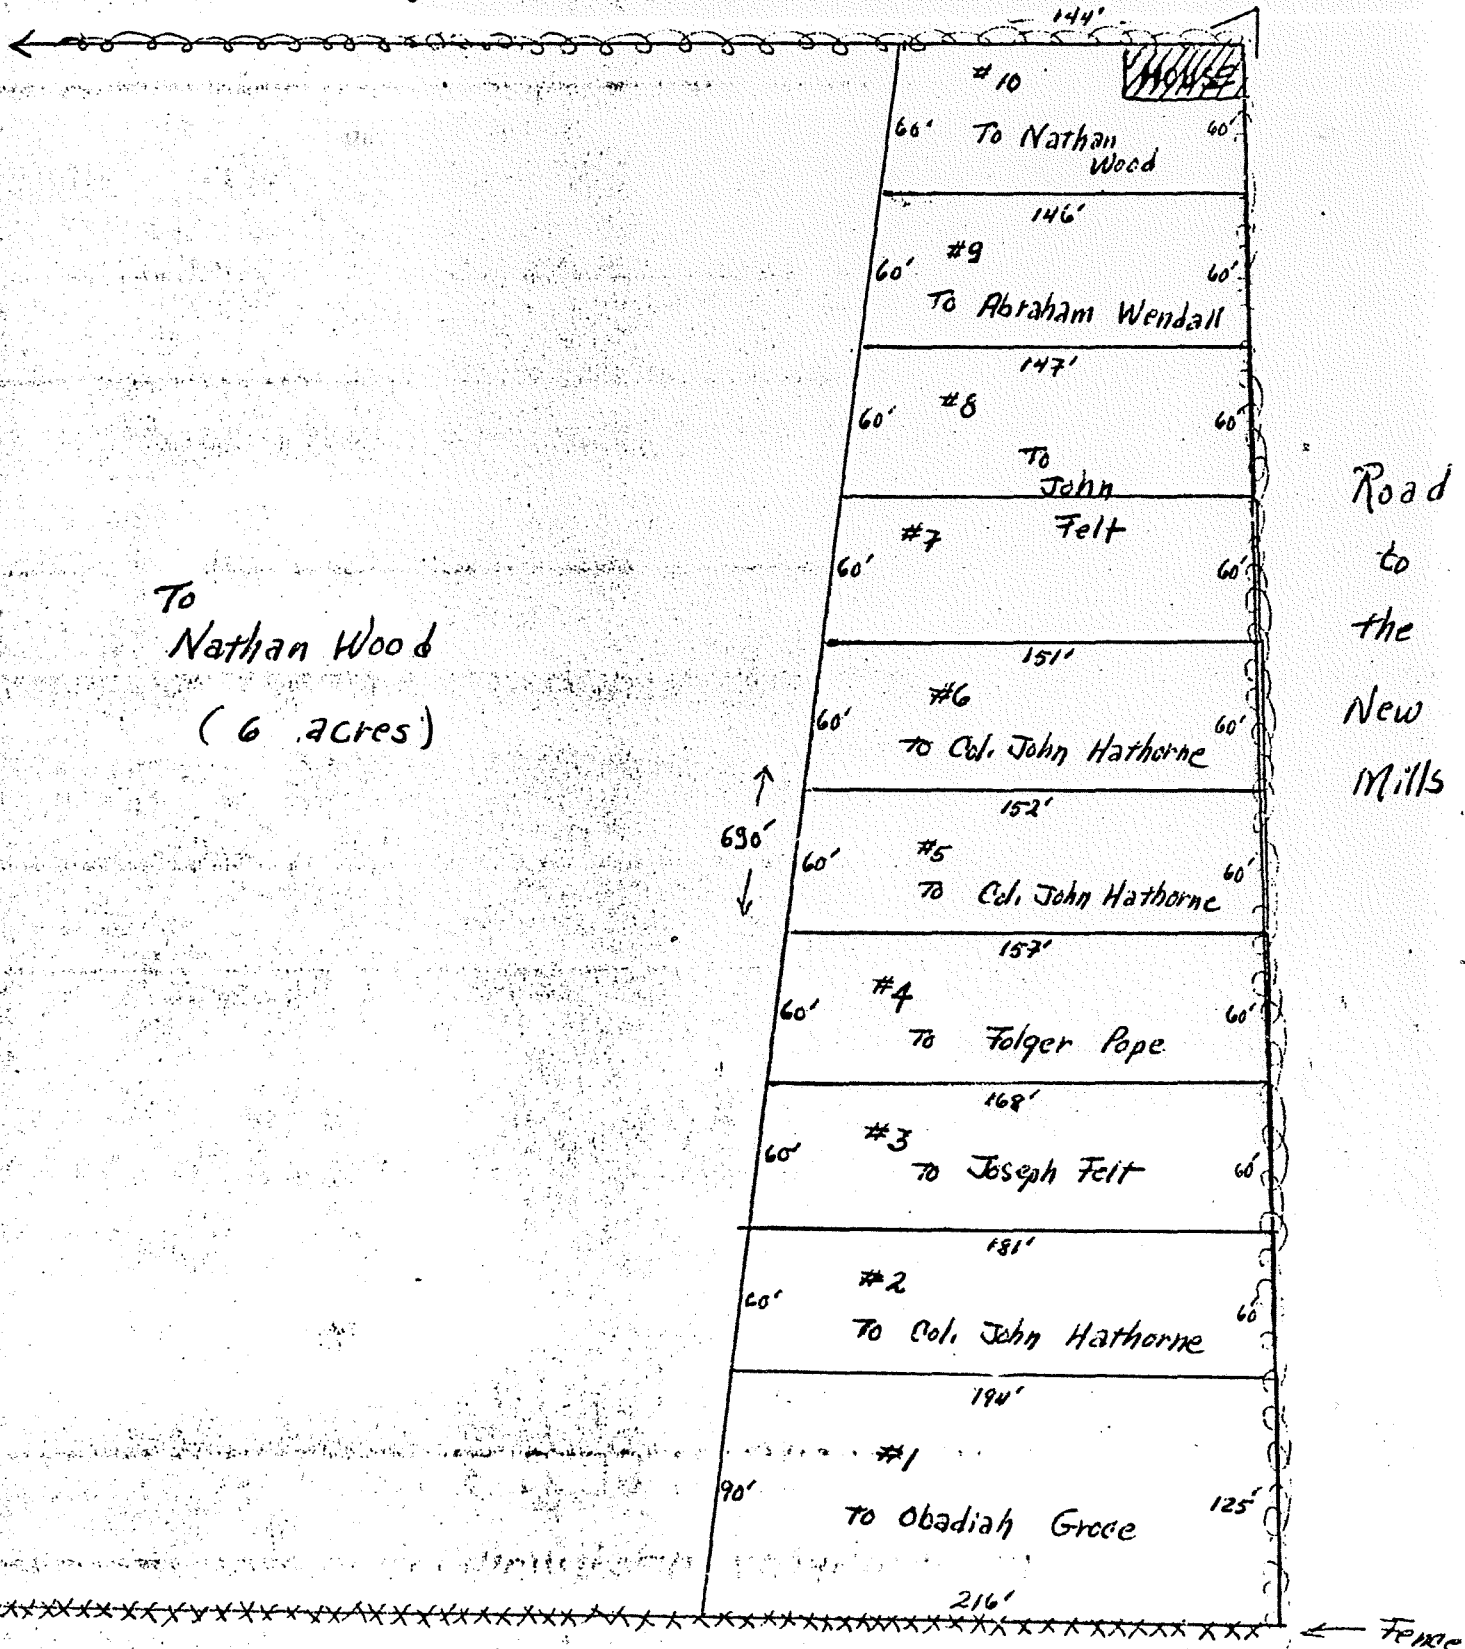 144'
#10
HOUSE
60'
To Nathan
Wood
60'
146'
#9
60'
60'
To Abraham Wendall
147'
#8
60'
60'
To
John
Felt
#7
60'
60'
151'
#6
60'
60'
To Col. John Hathorne
152'
#5
60'
60'
To Col. John Hathorne
157'
#4
60'
60'
To Folger Pope
168'
#3
60'
60'
To Joseph Felt
181'
#2
60'
60'
To Col. John Hathorne
194'
#1
90'
125'
To Obadiah Groce
216'
Fence
690'
To
Nathan Wood
(6 acres)
Road
to
the
New
Mills